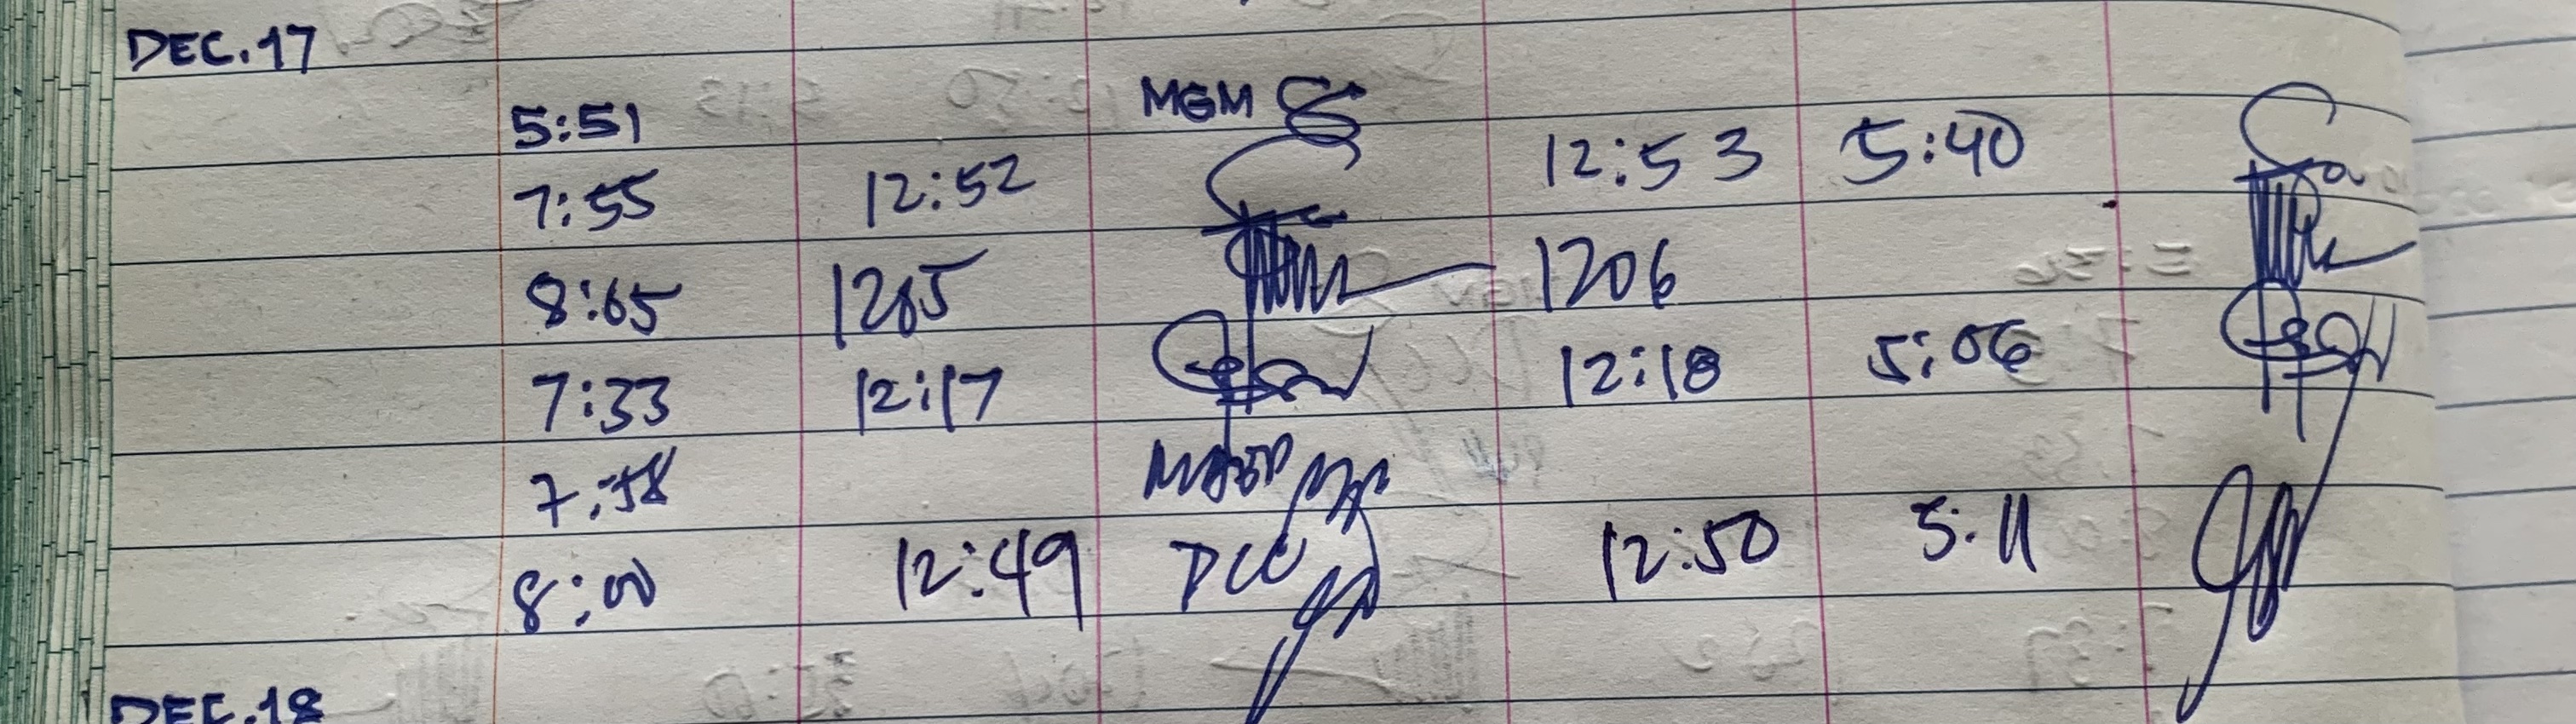 DEC. 17
5:51 MGM
7:55 12:52 12:53 5:40
8:05 1205 1206
7:33 12:17 12:18 5:06
7:58
8:00 12:49 DCC 12:50 5:11
DEC. 18